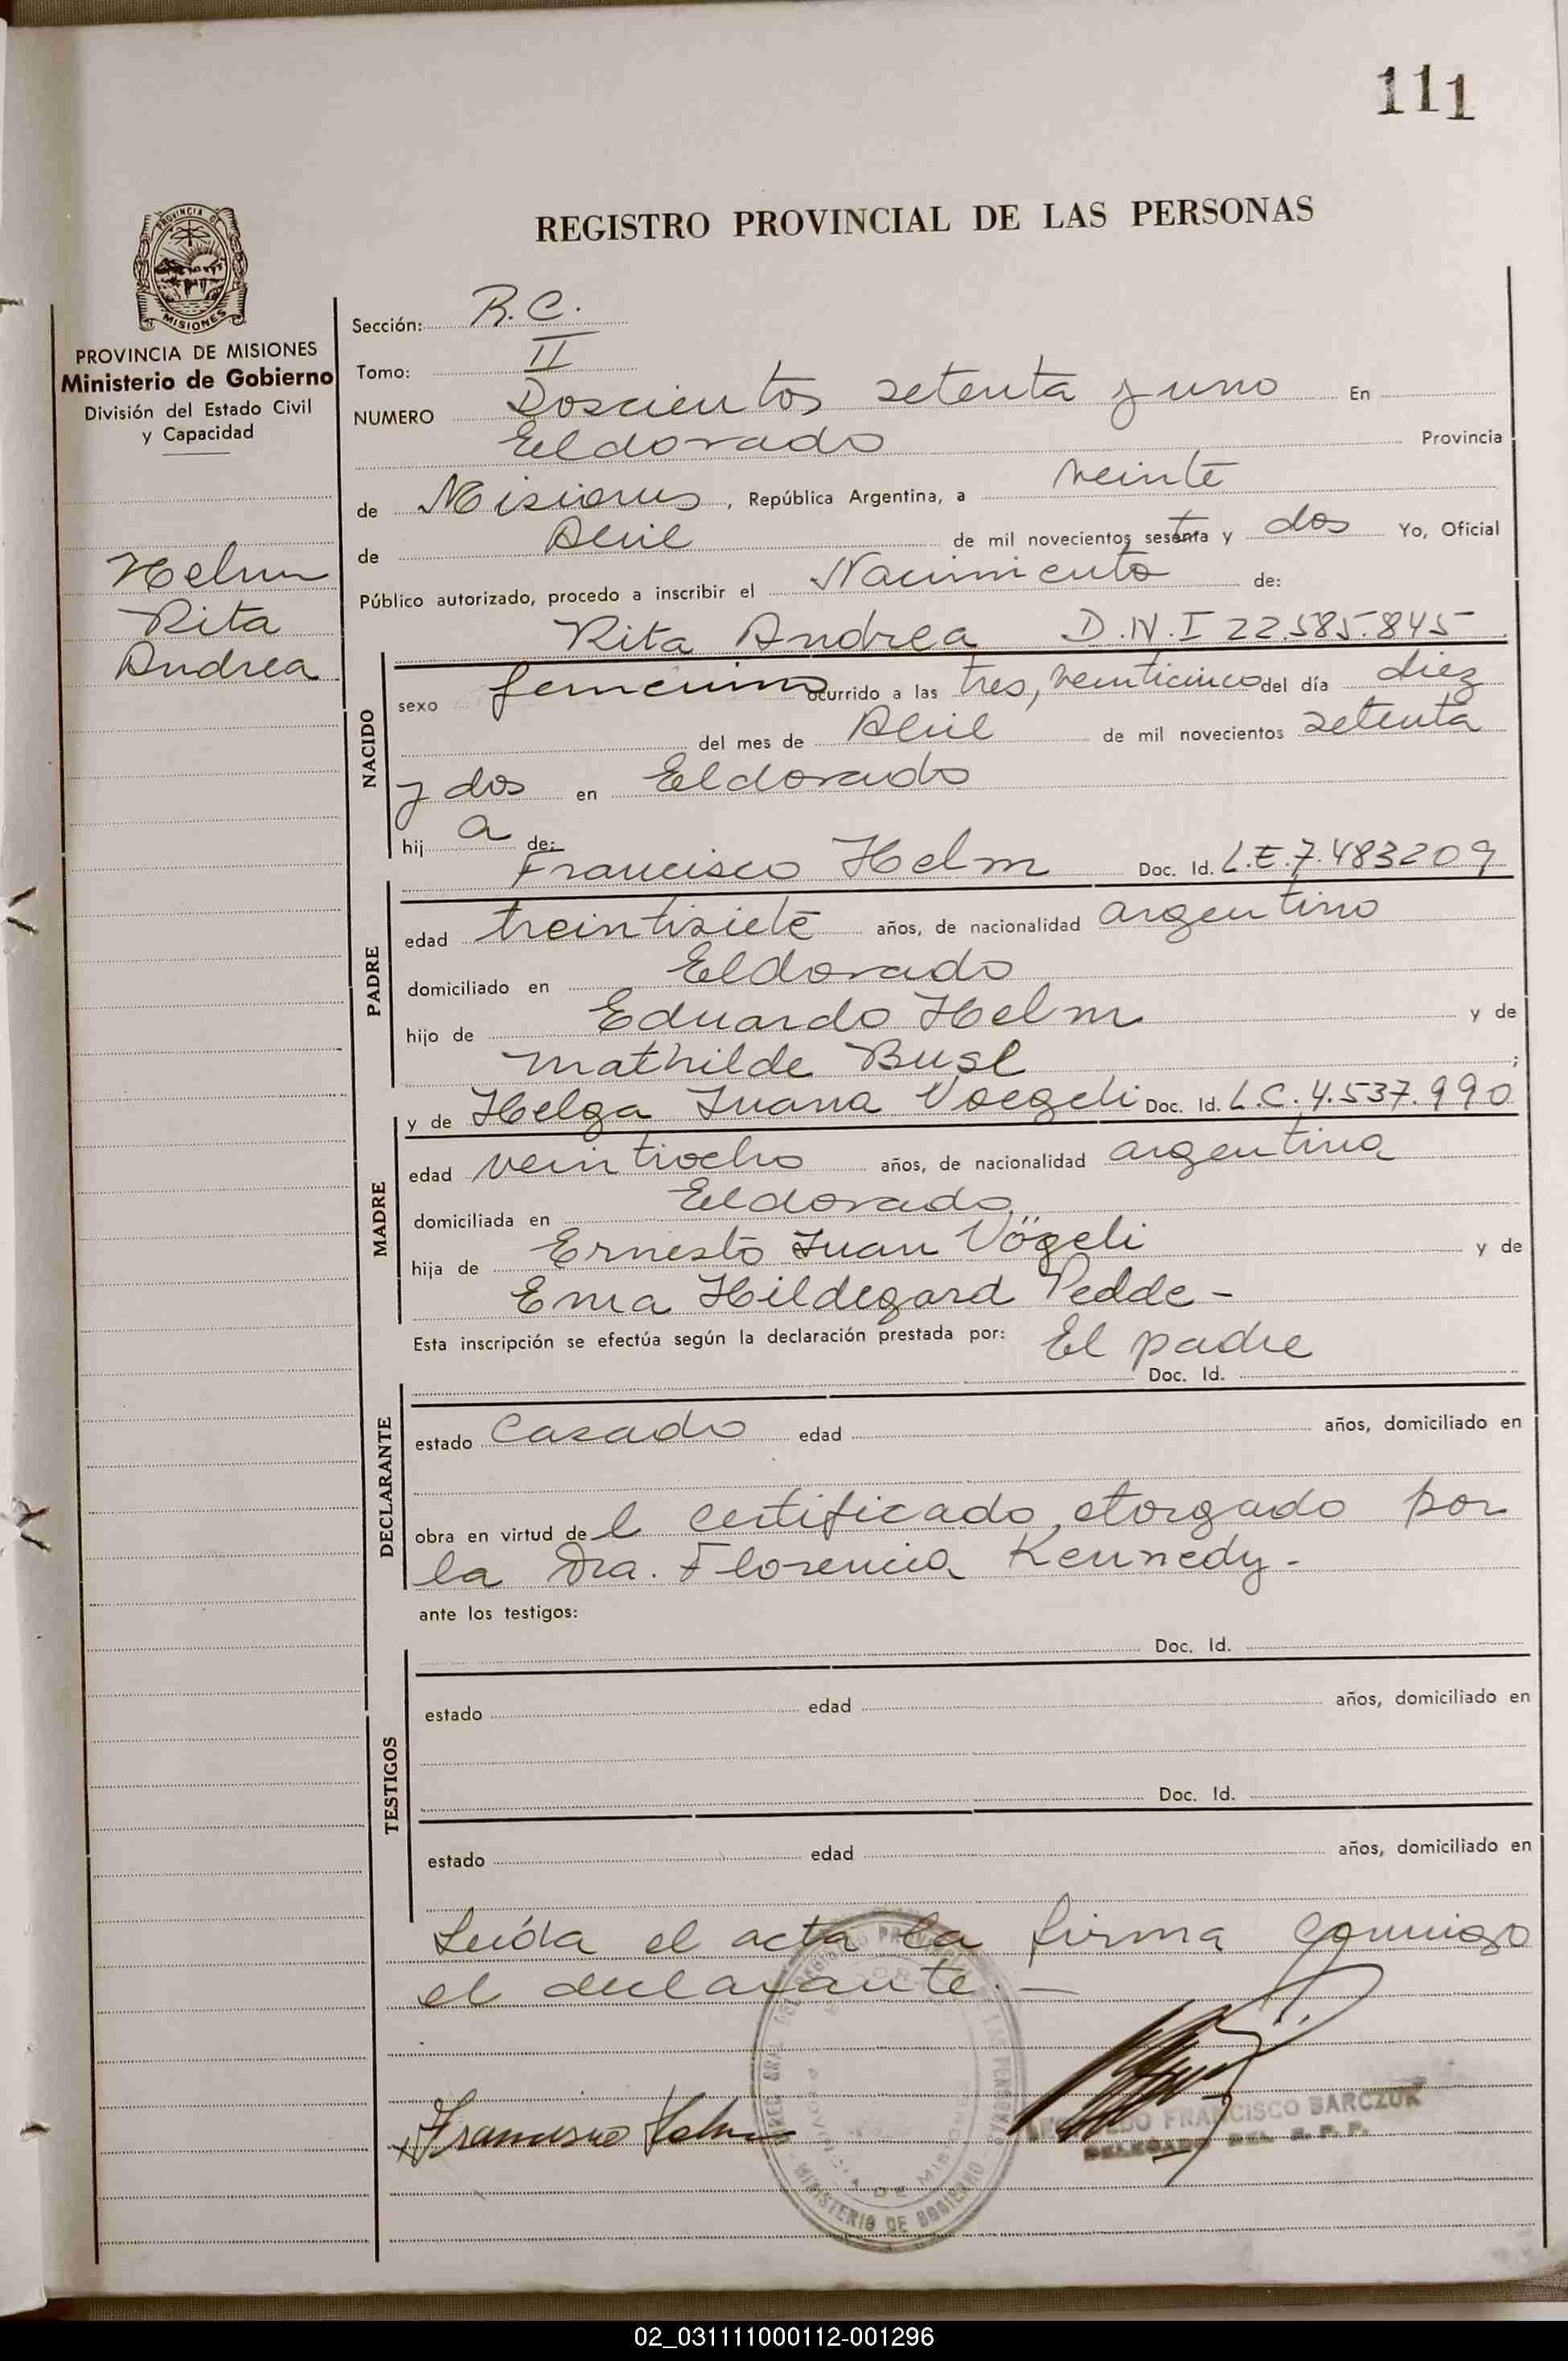 111
REGISTRO PROVINCIAL DE LAS PERSONAS
PROVINCIA DE
MISIONES
PROVINCIA DE MISIONES
Ministerio de Gobierno
División del Estado Civil
y Capacidad
Helm
Rita
Andrea
Sección: R.C.
Tomo: II
NUMERO Doscientos setenta y uno En
Eldorado Provincia
de Misiones, República Argentina, a veinte
de Abril de mil novecientos sesenta y dos Yo, Oficial
Público autorizado, procedo a inscribir el Nacimiento de:
Rita Andrea D.N.I 22.585.845
NACIDO
sexo femenino ocurrido a las tres, veinticinco del día diez
del mes de Abril de mil novecientos setenta
y dos en Eldorado
hij a de:
Francisco Helm Doc. Id. L.E.7.483209
PADRE
edad treintisiete años, de nacionalidad argentino
domiciliado en Eldorado
hijo de Eduardo Helm y de
Mathilde Busl ;
y de Helga Juana Voegeli Doc. Id. L.C.4.537.990
MADRE
edad veintiocho años, de nacionalidad argentina
domiciliada en Eldorado
hija de Ernesto Juan Vögeli y de
Ema Hildegard Pedde -
Esta inscripción se efectúa según la declaración prestada por: El padre
Doc. Id.
DECLARANTE
estado Casado edad años, domiciliado en
obra en virtud de l certificado otorgado por
la Dra. Florencia Kennedy -
ante los testigos:
Doc. Id.
TESTIGOS
estado edad años, domiciliado en
Doc. Id.
estado edad años, domiciliado en
Leída el acta la firma conmigo
el declarante. —
Francisco Helm
PROVINCIA DE MISIONES
MINISTERIO DE GOBIERNO
FRANCISCO BARCZUK
DELEGADO DEL R. P. P.
02_031111000112-001296